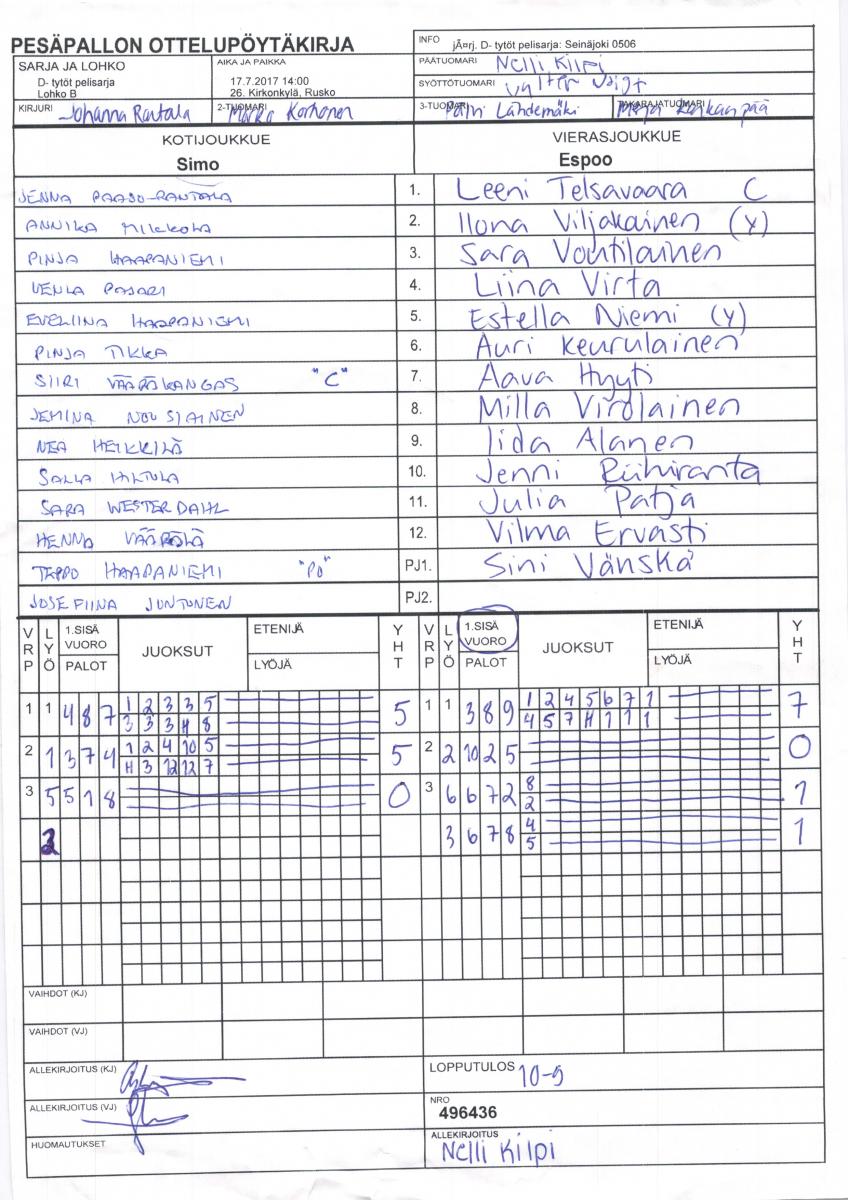 PESÄPALLON OTTELUPÖYTÄKIRJA
INFO jÃ¤rj. D- tytöt pelisarja: Seinäjoki 0506
SARJA JA LOHKO
D- tytöt pelisarja
Lohko B
AIKA JA PAIKKA
17.7.2017 14:00
26. Kirkonkylä, Rusko
PÄÄTUOMARI Nelli Kilpi
SYÖTTÖTUOMARI Valtter Voigt
KIRJURI Johanna Rantala
2-TUOMARI Marko Korhonen
3-TUOMARI Päivi Lähdemäki
TAKARAJATUOMARI Merja
KOTIJOUKKUE
Simo
VIERASJOUKKUE
Espoo
JENNA PAASO-RANTALA 1. Leeni Telsavaara C
ANNIKA MIKKOLA 2. Ilona Viljakainen (Y)
PINJA HAAPANIEMI 3. Sara Voutilainen
VENLA PASARI 4. Liina Virta
EVELIINA HAAPANIEMI 5. Estella Niemi (Y)
PINJA TIKKA 6. Auri Keurulainen
SIIRI VÄÄRÄKANGAS "C" 7. Aava Hyyti
JEMINA NOUSIAINEN 8. Milla Virolainen
NEA HEIKKILÄ 9. Iida Alanen
SALLA HILTULA 10. Jenni Riihiranta
SARA WESTERDAHL 11. Julia Patja
HENNA VÄÄRÄLÄ 12. Vilma Ervasti
TEPPO HAAPANIEMI "PJ" PJ1. Sini Vänskä
JOSEFIINA JUNTUNEN PJ2.
VRP LYÖ 1.SISÄ VUORO PALOT JUOKSUT ETENIJÄ LYÖJÄ YHT VRP LYÖ 1.SISÄ VUORO PALOT JUOKSUT ETENIJÄ LYÖJÄ YHT
1 1 4 8 7 1 2 3 3 5 5 1 1 3 8 9 1 2 4 5 6 7 1 7
3 3 3 H 8 4 5 7 H 1 1 1
2 1 3 7 4 1 2 4 10 5 5 2 2 10 2 5 0
H 3 12 12 7
3 5 5 1 8 0 3 6 6 7 2 8 1
2
2 3 6 7 8 4 1
5
VAIHDOT (KJ)
VAIHDOT (VJ)
ALLEKIRJOITUS (KJ)
LOPPUTULOS 10-9
ALLEKIRJOITUS (VJ)
NRO
496436
HUOMAUTUKSET
ALLEKIRJOITUS
Nelli Kilpi